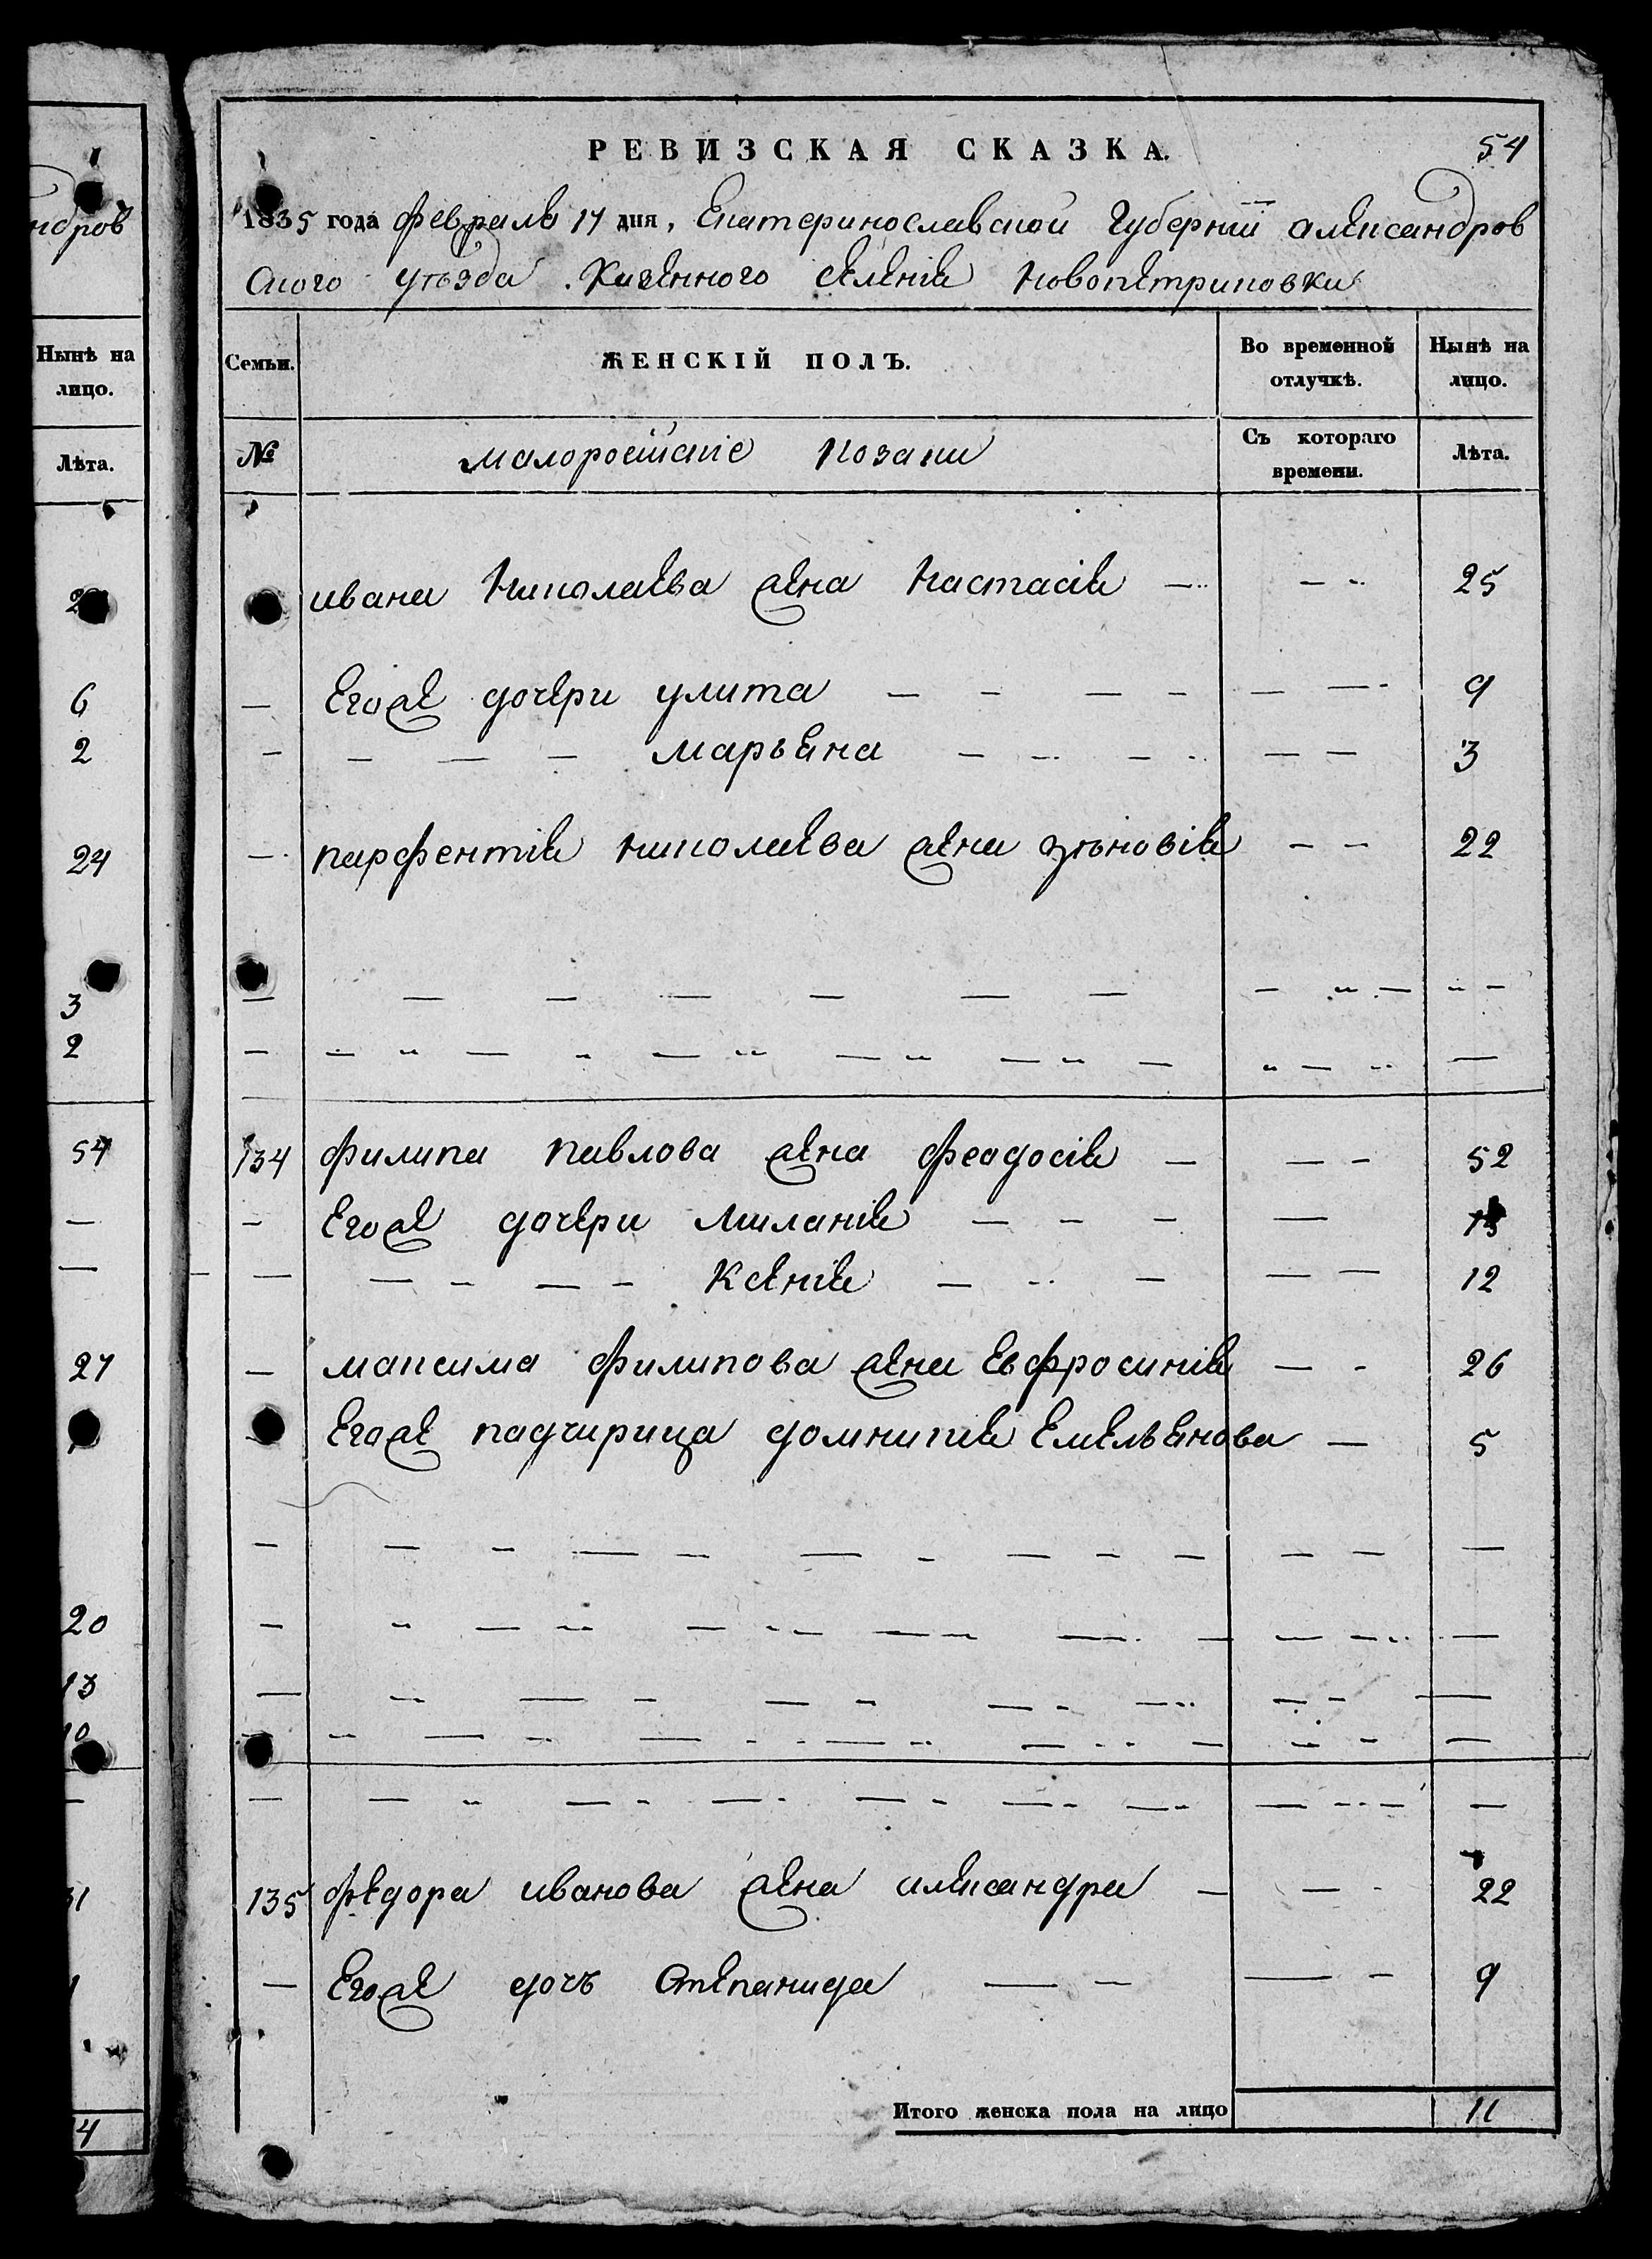 РЕВИЗСКАЯ СКАЗКА. 54
1835 года февраля 17 дня, Екатеринославской Губернїи александров
ского уѣзда. Казенного селенія Новопетриковки
Семьи. ЖЕНСКІЙ ПОЛЪ. Во временной отлучкѣ. Нынѣ на лицо.
№ малоросійскіе козаки Съ котораго времени. Лѣта.
ивана Николаева жена Настасія 25
— Егоже дочери улита — — — — — — 9
— — — — Марьяна — — — — — — 3
— парфентія николаева жена зѣновія — — 22
134 филипа павлова жена феодосія — — — 52
— Егоже дочери Миланія — — — —
— — — — — Ксенія — — — — — 12
— максима филипова жена Евфросинія — — 26
Егоже падчирица домникія Емельянова — 5
135 федора иванова жена александра — — — 22
— Егоже дочь Степанида — — — — 9
Итого женска пола на лицо 11
ндров
Нынѣ на
лицо.
Лѣта.
6
2
24
3
2
54
—
—
27
20
13
10